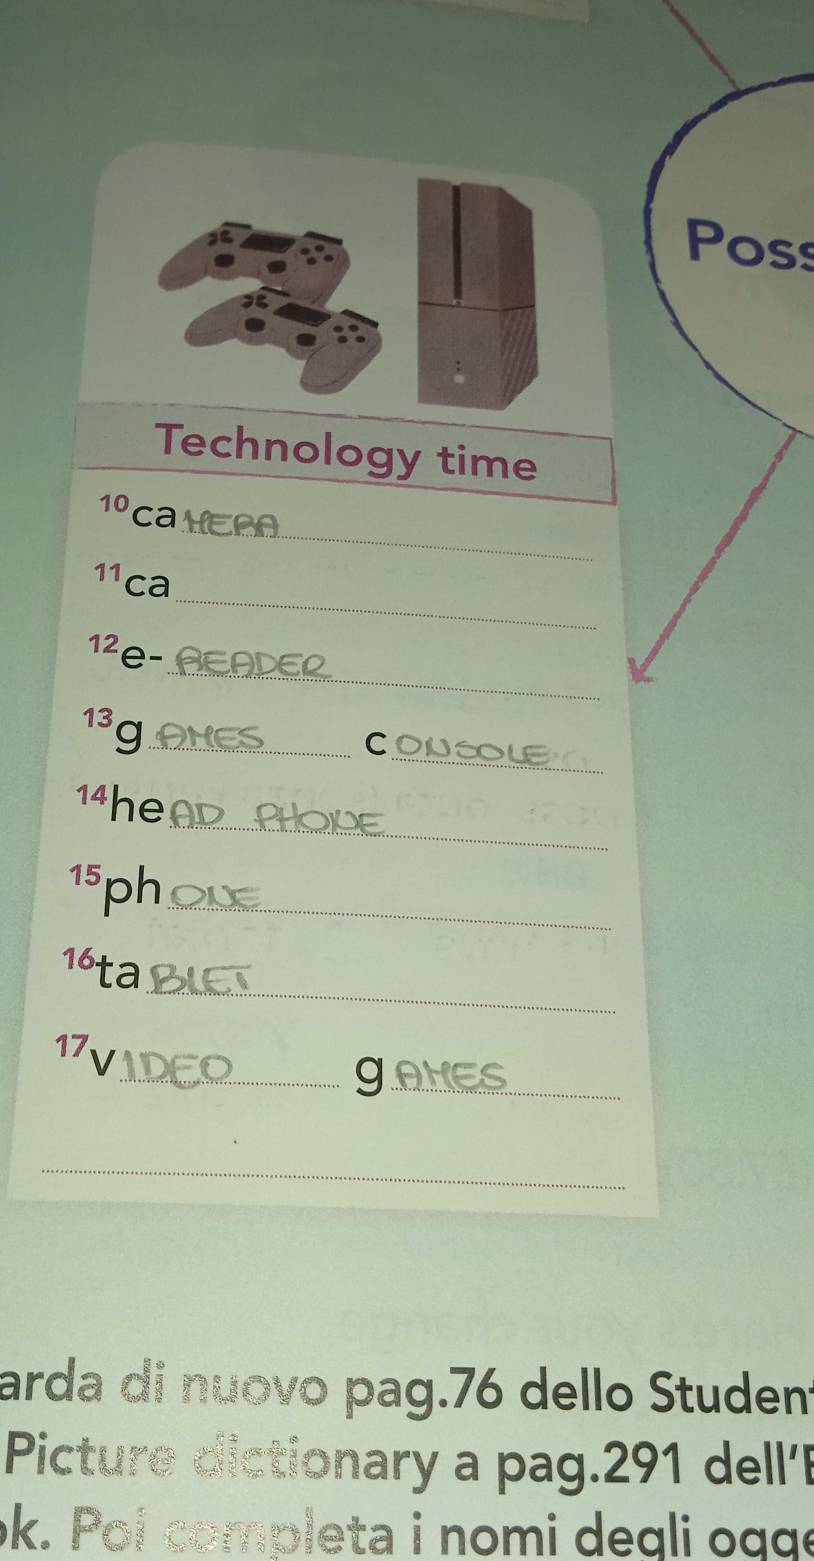 Poss
Technology time
10 caMERA
11 ca
12 e-READER
13 gAMES cONSOLE
14 heAD PHONE
15 phONE
16 taBLET
17 vIDEO gAMES
arda di nuovo pag.76 dello Studen
Picture dictionary a pag.291 dell'
ok. Poi completa i nomi degli ogge